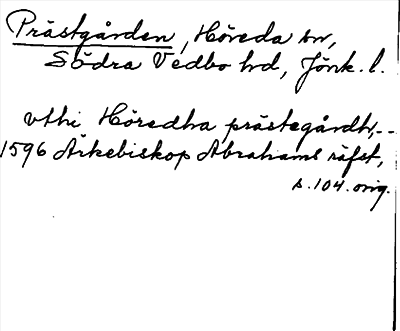 Prästgården, Höreda sn,
Södra Vedbo hd, Jönk. l.
vthi Höredha prästegårdh, --
1596 Ärkebiskop Abrahams räfst,
s. 104. orig.